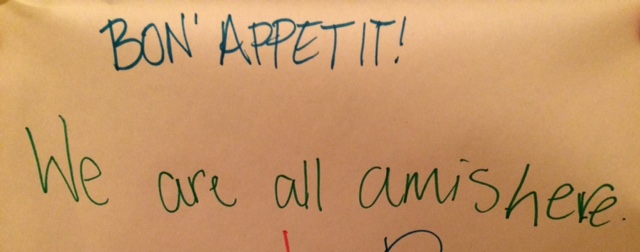 BON' APPETIT!
We are all amis here.